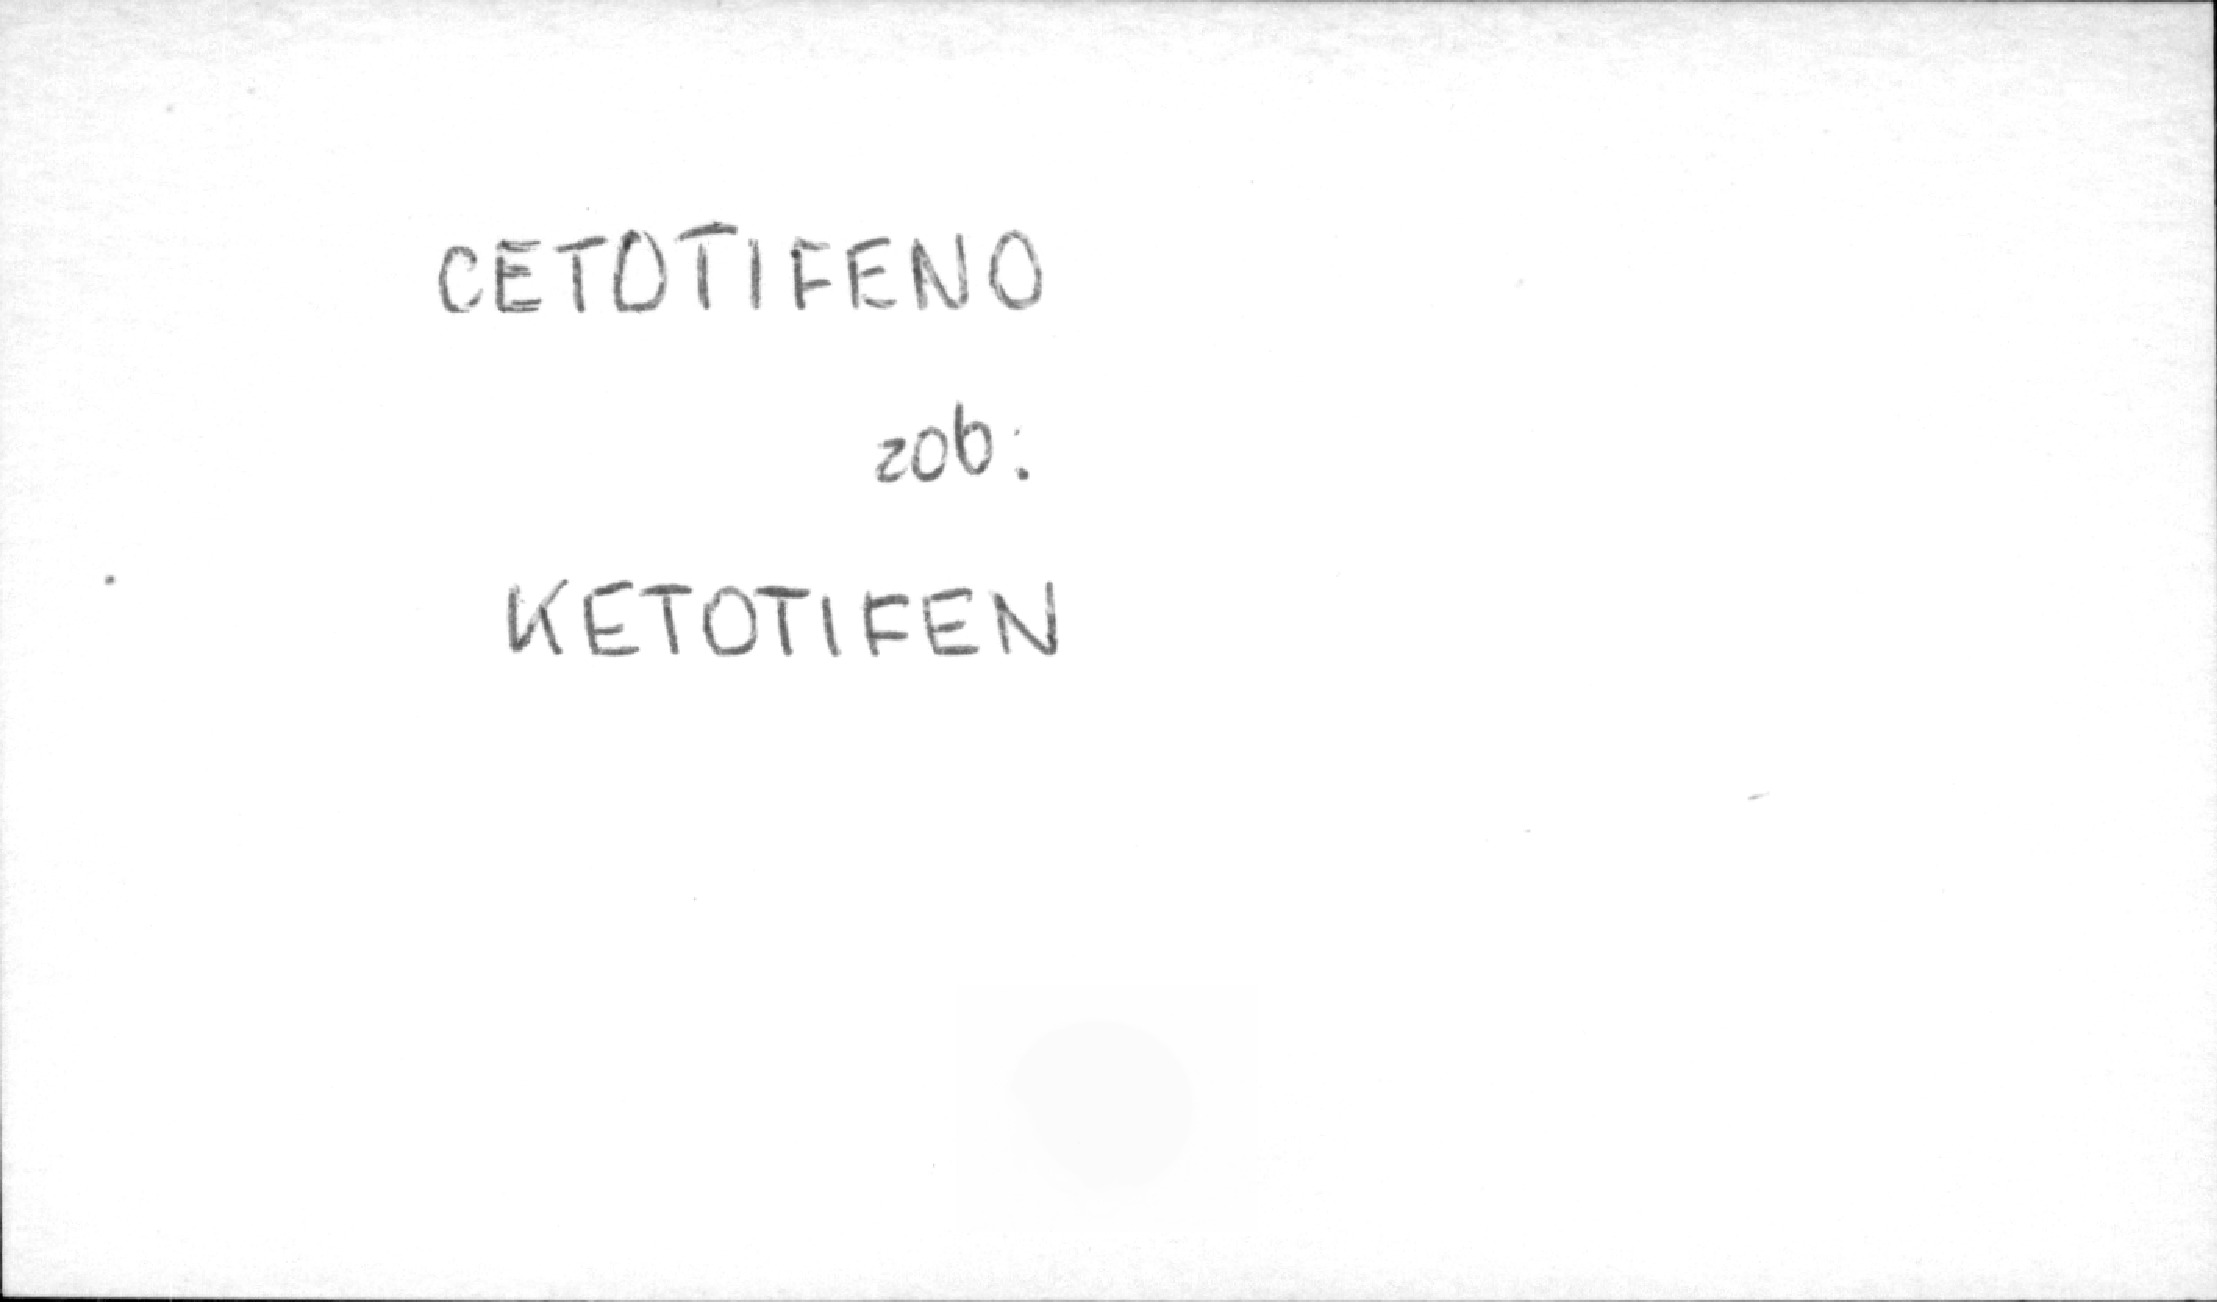 CETOTIFENO
zob:
KETOTIFEN